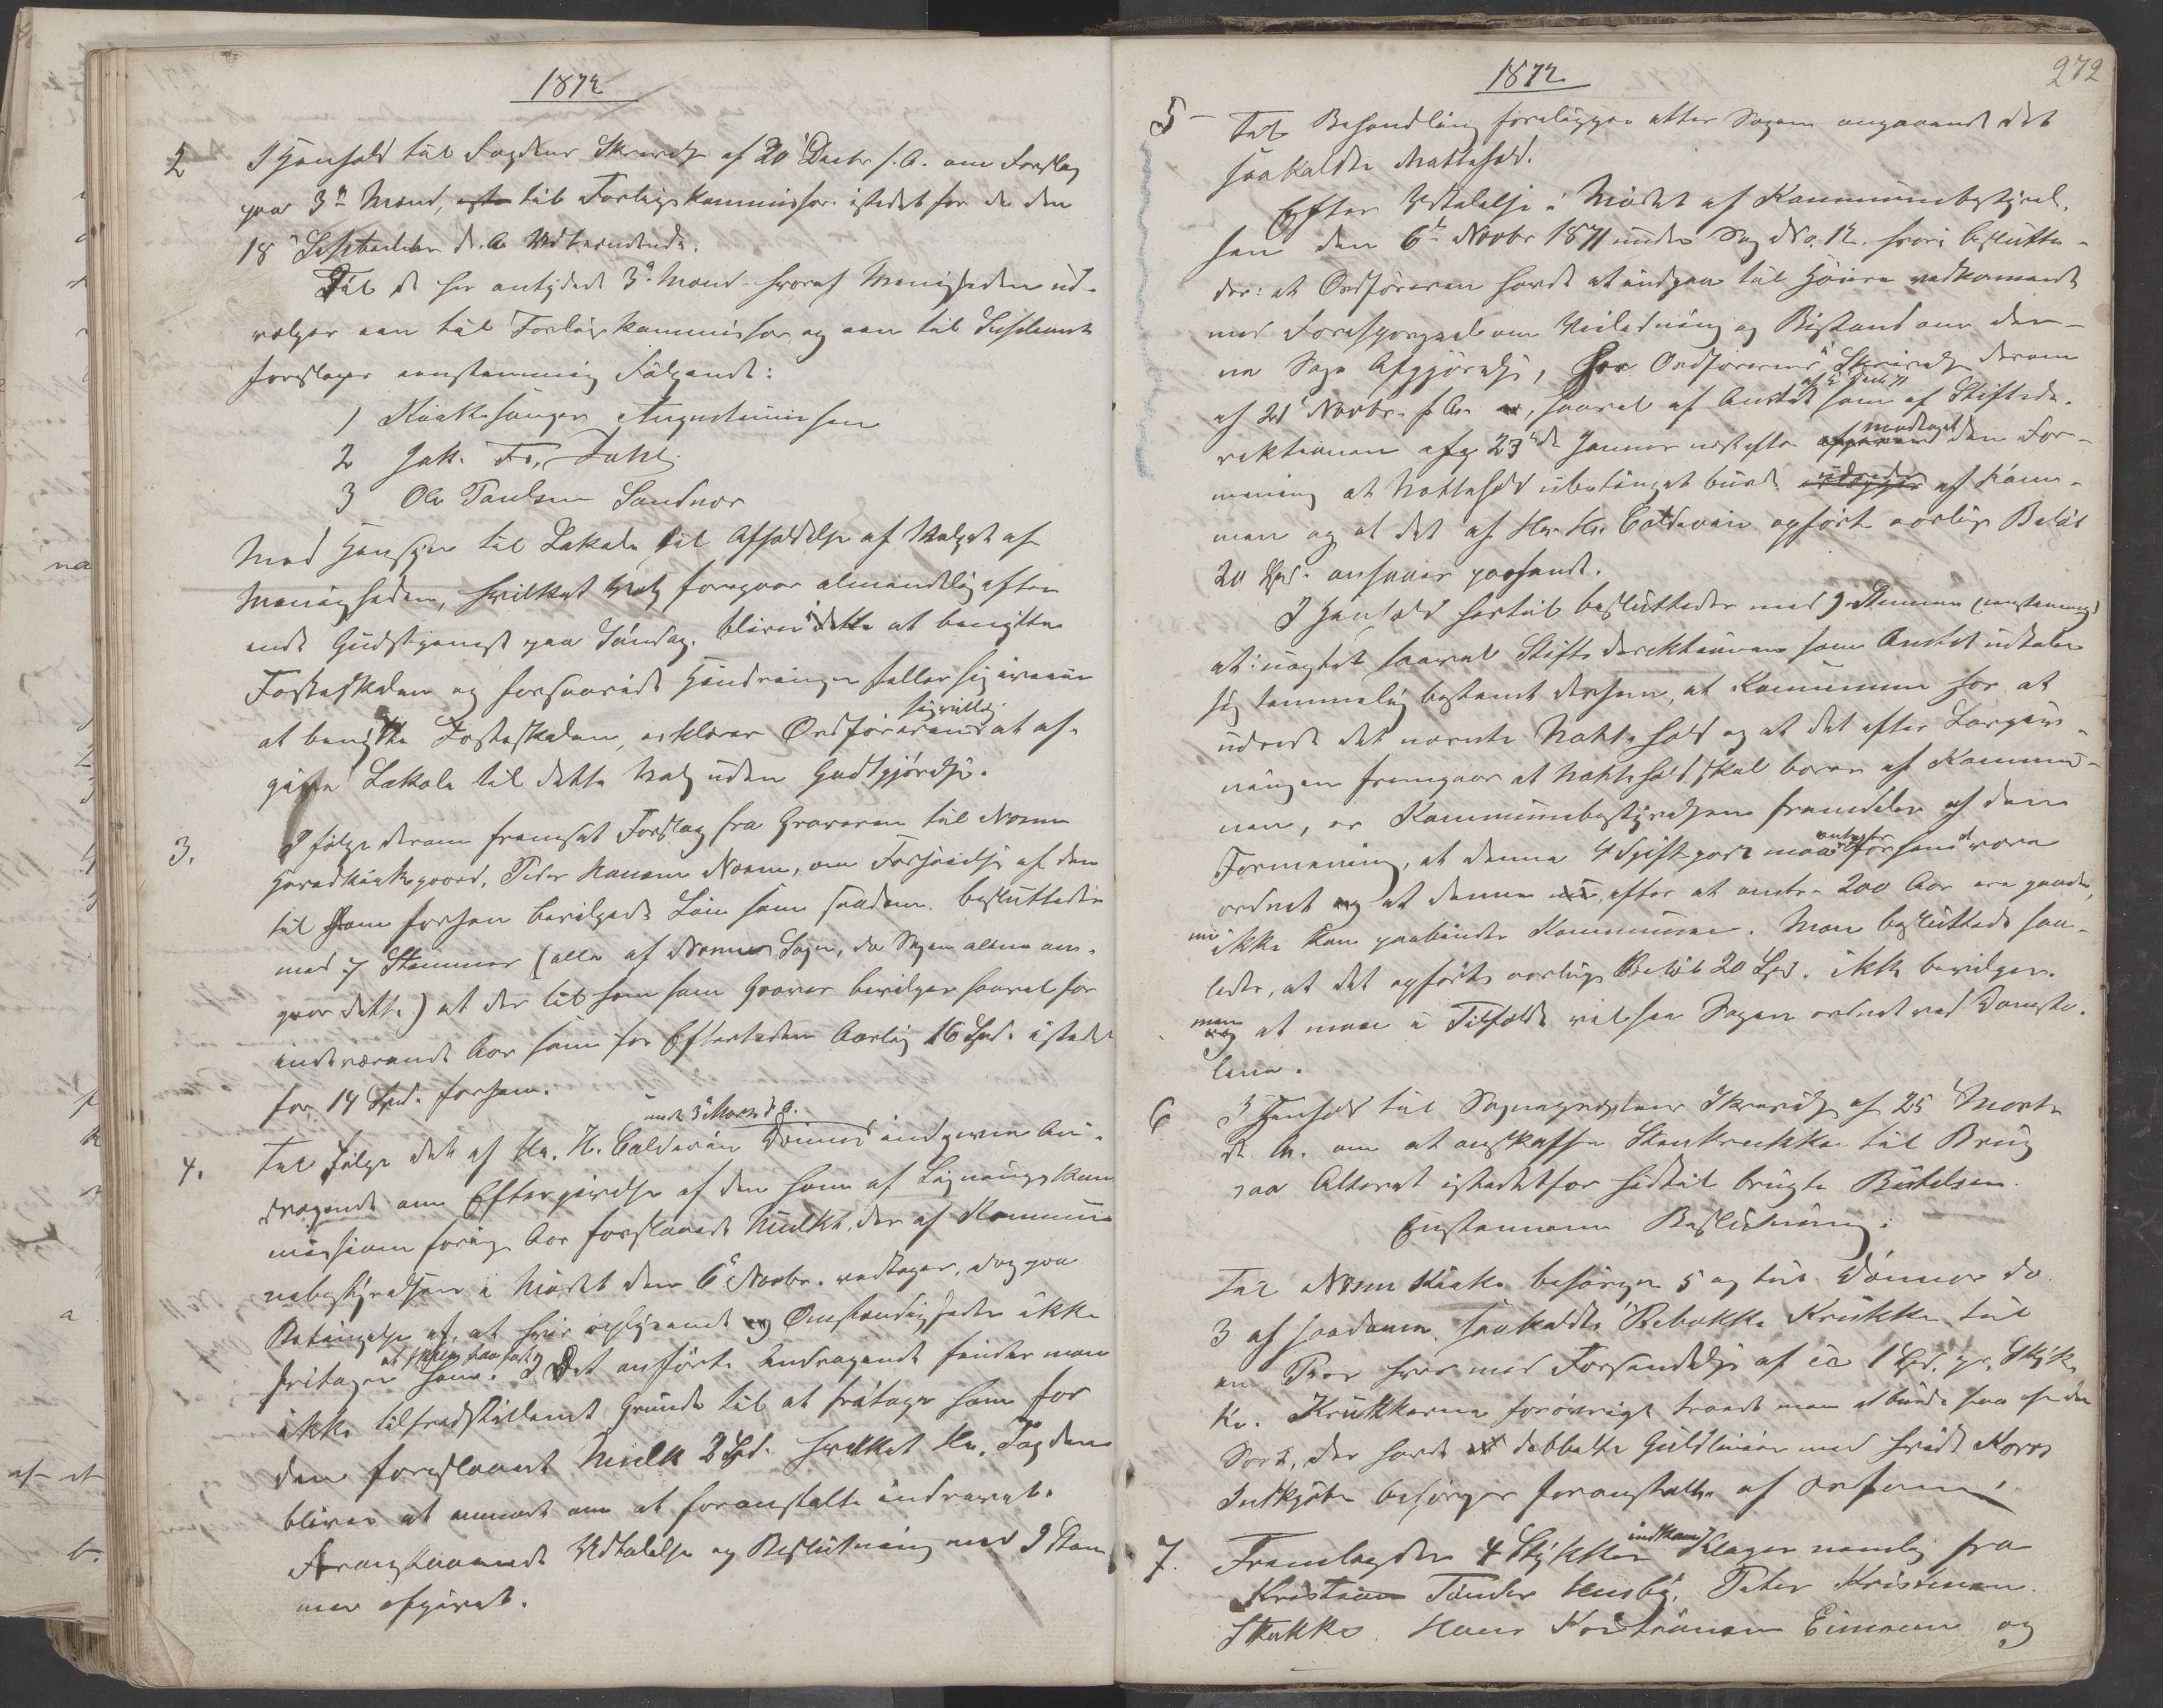 1872
2 I Henhold til Fogdens Skrivelse af 20 Decbr f. A. om Forslag
paa 3de Mænd, til Forligskommissær istedet for de den
18 September d. A. Udtrædende.
Til de her antydede 3de Mænd hvoraf Menigheden ud-
vælger een til Forligskommissær og een til Suppleant
foreslaaes eenstemmig Følgende:
1 Kirkesanger Augustinussen
2 Jak. Fr. Dahl
3 Ole Paulsen Sandnæs
Med Hensyn til Lokale til Afholdelse af Valget af
Menigheden, hvilket Valg foregaar almindelig efter
endt Gudstjeneste paa Søndag, bliver dette at benytte
Fasteskolen og forsaavidt Hindringer stiller sig iveien
at benytte Fasteskolen, erklærer Ordføreren sig villig at af-
give Lokale til dette Valg uden Godtgjørelse.
3. I følge derom fremsat Forslag fra Graveren til Nesne
Hovedkirkegaard, Peder Hansen Nesne, om Forhøielse af den
til ham forhen bevilgede Løn som saadan, besluttedes
med 7 Stemmer (alle af Nesne Sogn, da Sagen alene an-
gaar dette) at der til ham som Graver bevilges saavel for
indeværende Aar som for Eftertiden Aarlig 16 Spd. istedet
for 14 Spd. forhen.
4. Til Følge det af Hr. H. Coldevin Dønnes under 3 Marts d. A. indgivne An-
dragende om Eftergivelse af den ham af Ligningskom
missionen forrige Aar forelaaede Mulkt, der af Kommu
nebestyrelsen i Mødet den 6 Novbr. vedtoges, dog paa
Betingelse af, at hvis oplysende Omstændigheder ikke
fritager ham. I Det anførte Andragende finder man
ikke tilfredsstillende Grunde til at fritage ham for
den foreslaaede Mulkt 2 Spd. hvilket Hr. Fogden
bliver at anmode om at foranstalte inddrevet.
Foranstaaende Udtalelse og Beslutning med 9 Stem
mer afgivet.
1872
272
5 - Til Behandling foreligger atter Sagen angaaende det
saakaldte Nattehold.
Efter Udtalelse i Mødet af Kommunebestyrel-
sen den 6te Novbr 1871 under Sag No. 12, hvori beslutte-
des: at Ordføreren havde at indgaa til Høiere vedkommende
med Forespørgsel om Veiledning og Bistand om den-
ne Sags Afgjørelse, har Ordførerens Skrivelse derom
af 21 Novbr. f. A., saavel af Amtet som af Stiftsdi-
rektionen afg. 23de Januar næstefter modtaget den For-
mening at Nattehold ubetinget burde udredes af Kom-
mune og at det af Hr. Hr. Coldevin opførte aarlige Beløb
20 Spd. ansees passende.
I Henhold hertil besluttedes med 9 Stemmer (eenstemmig)
at: uagtet saavel Stiftsdirektionen som Amtet udtaler
sig temmelig bestemt derhen, at Kommunen har at
udrede det nævnte Nattehold og at det efter Lovgiv-
ningen fremgaar at Nattehold skal bæres af Kommu-
nen, er Kommunebestyrelsen fremdeles af den
Formening, at denne Udgiftspost maa antages forhen at være
ordnet og at denne, efter at over 200 Aar ere gaaede,
nu ikke kan paabinde Kommunen. Man besluttede saa-
ledes, at det opførte aarlige Beløb 20 Spd. ikke bevilges.
men at man i Tilfælde vil see Sagen ordnet ved Domsto-
lene.
6 I Henhold til Sogneprestens Skrivelse af 25 Marts
d. A. om at anskaffe Stenkrukker til Brug
paa Alteret istedetfor hidtil brugte Buteljer.
Enstemmen Beslutning:
Til Nesne Kirke besørges 5 og til Dønnes do
3 af saadanne, saakaldte Rebekka Krukker til
en Priis hver med Forsendelse af ca 1 Spd. pr. Stykke
Kr. Krukkerne forøvrigt troede man at burde faa af den
Sort, der havde dobbelte Guldlinier med hvidt Kors
Indkjøbet besørges foranstaltet af Ordføreren.
7. Fremlagdes 4 Stykker indkomne Klager nemlig fra
Kristian Tønder Husby, Peter Kristensen
Stokke, Hans Kristiansen Einmoen og